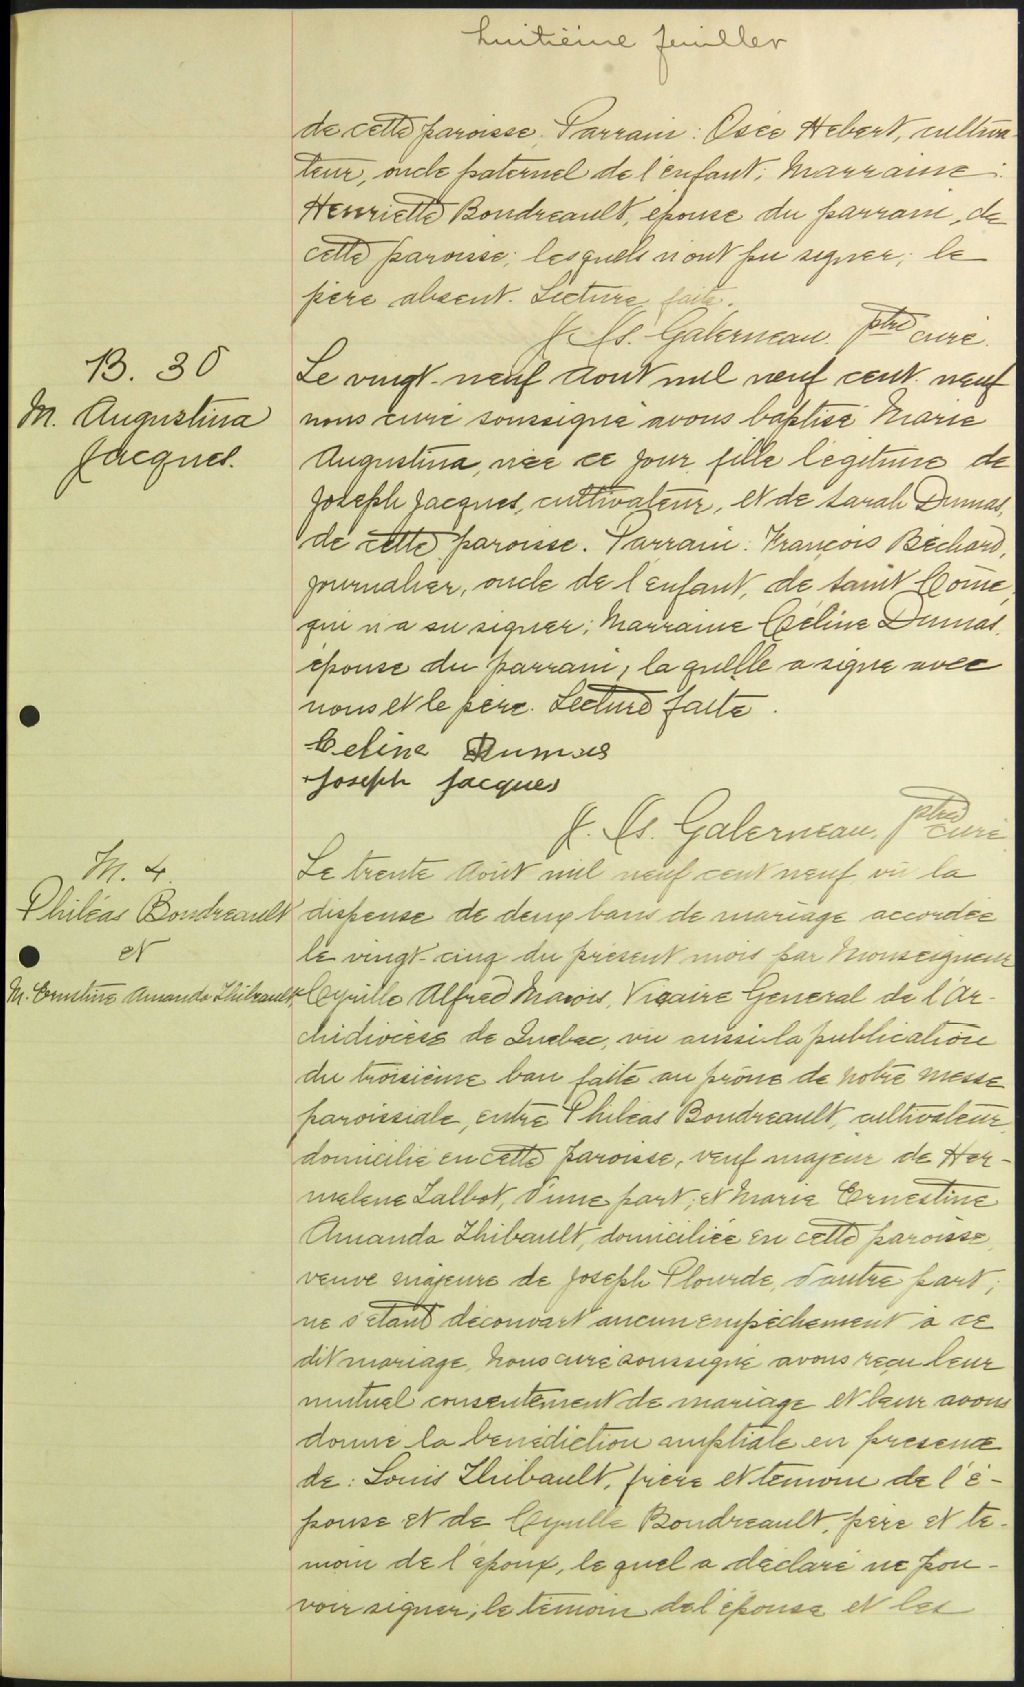 huitième feuillet
de cette paroisse. Parrain: Osée Hebert, cultiva-
teur, oncle paternel de l'enfant; Marraine:
Henriette Boudreault, épouse du parrain, de
cette paroisse; lesquels n'ont pu signer; le
père absent. Lecture faite.
Galerneau ptre curé.
B. 30
M. Augustina
Jacques.
Le vingt-neuf Août mil neuf cent neuf
nous curé soussigné avons baptisé Marie
Augustina, née ce jour, fille légitime de
Joseph Jacques, cultivateur, et de Sarah Dumas,
de cette paroisse. Parrain: François Béchard,
journalier, oncle de l'enfant, de Saint Côme,
qui n'a su signer; Marraine Céline Dumas,
épouse du parrain, laquelle a signé avec
nous et le père. Lecture faite.
Celina Dumas
Joseph Jacques
Galerneau, ptre curé
M. 4.
Philéas Boudreault
et
M. Ernestine Amanda Thibeault
Le trente Août mil neuf cent neuf, vû la
dispense de deux bans de mariage accordée
le vingt-cinq du présent mois par Monseigneur
Cyrille Alfred Marois, Vicaire Général de l'Ar-
chidiocèse de Québec, vu aussi la publication
du troisième ban faite au prône de notre messe
paroissiale, entre Philéas Boudreault, cultivateur,
domicilié en cette paroisse, veuf majeur de Her-
melene Talbot, d'une part; et Marie Ernestine
Amanda Thibault, domiciliée en cette paroisse,
veuve majeure de Joseph Plourde, d'autre part;
ne s'étant découvert aucun empêchement à ce
dit mariage, Nous curé soussigné avons reçu leur
mutuel consentement de mariage et leur avons
donné la bénédiction nuptiale en présence
de: Louis Thibault, frère et témoin de l'é-
pouse et de Cyrille Boudreault, père et té-
moin de l'époux, lequel a déclaré ne pou-
voir signer; le témoin de l'épouse et les